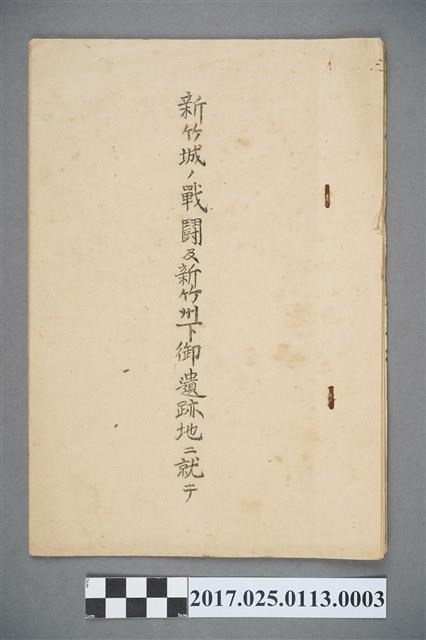 新竹城ノ戰鬪及新竹州下御遺跡地ニ就テ
2017.025.0113.0003